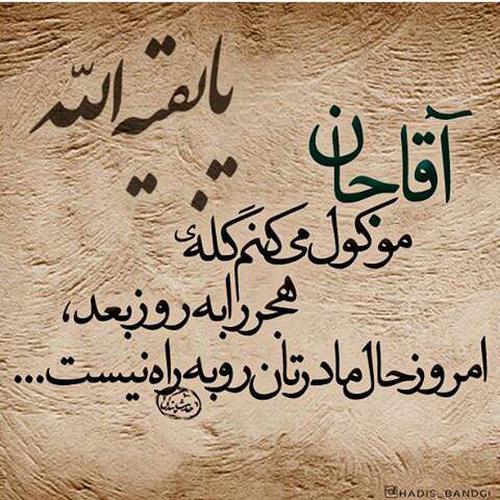 یا بقیة الله
آقاجان
موکول می‌کنم گله‌ی
هجر را به روز بعد،
امروز حال مادرتان رو به راه نیست...
HADIS_BANDGI